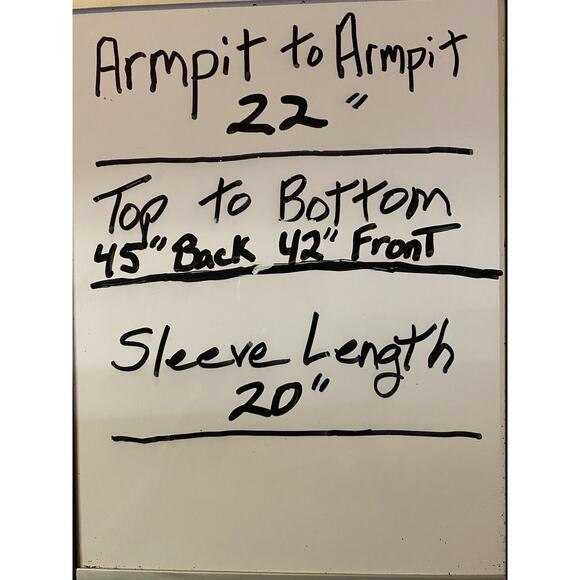 Armpit to Armpit
22"
Top to Bottom
45" Back 42" Front
Sleeve Length
20"